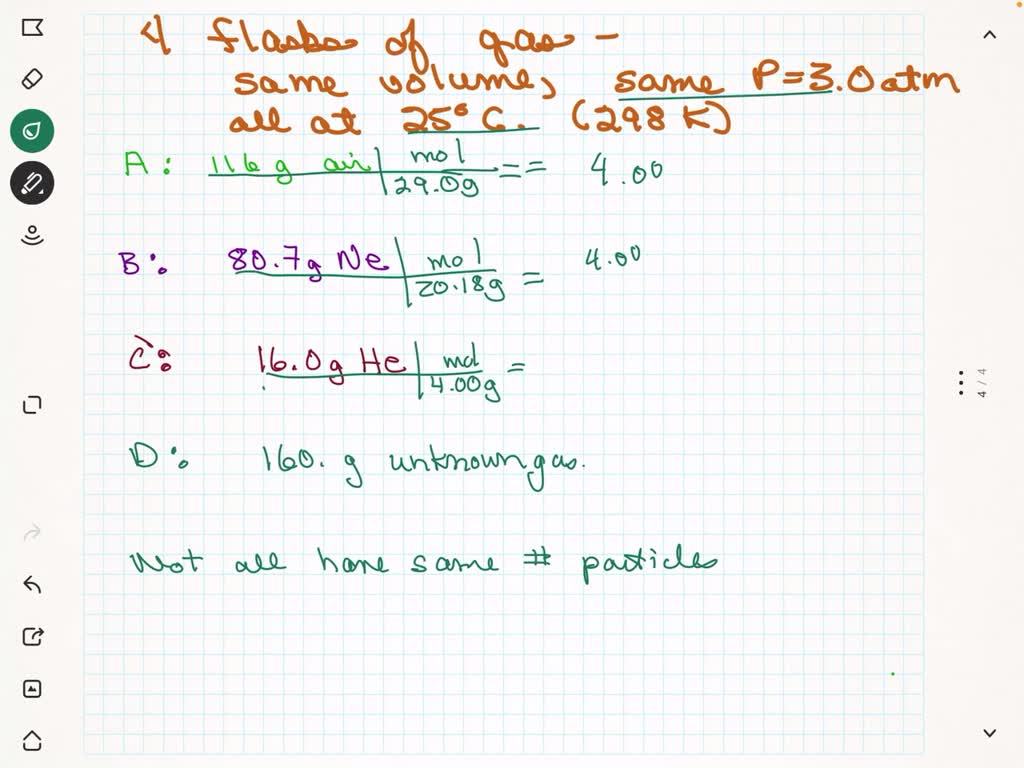 4 flasks of gas -
same volume, same P=3.0 atm
all at 25° C. (298 K)
A: 116 g air | mol == 4.00
29.0g
B: 80.7g Ne | mol = 4.00
20.18g
C: 16.0g He | mol =
4.00g
D: 160. g unknown gas.
Not all have same # particles
4 / 4